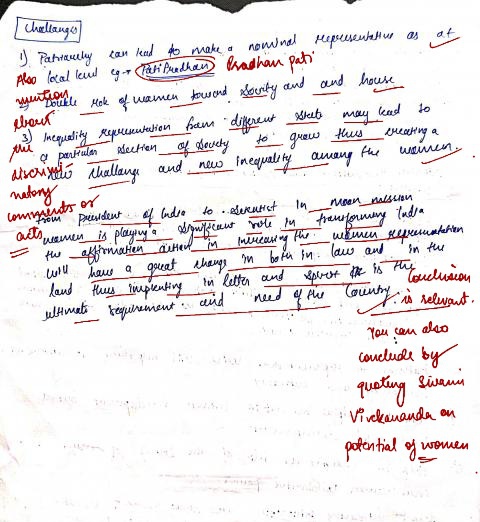 Challanges
1) Patriarchy can lead to make a nominal representative as at
Also local level eg → Pati Pradhan Pradhan pati
mention
2) Double role of women toward society and and house
about
3) Inequality representation from different state may lead to
the a particular section of society to grow thus creating a
discrimi new challange and new inequality among the women.
natory
comments or
acts
from president of India to scientist in moon mission
women is playing a significant role in transforming India
the affirmation action in increasing the women representation
will have a great change in both in law and in the
land thus implenting in letter and spirit is the
ultimate requirement and need of the country
Conclusion
is relevant.
You can also
conclude by
quoting Swami
Vivekananda on
potential of women